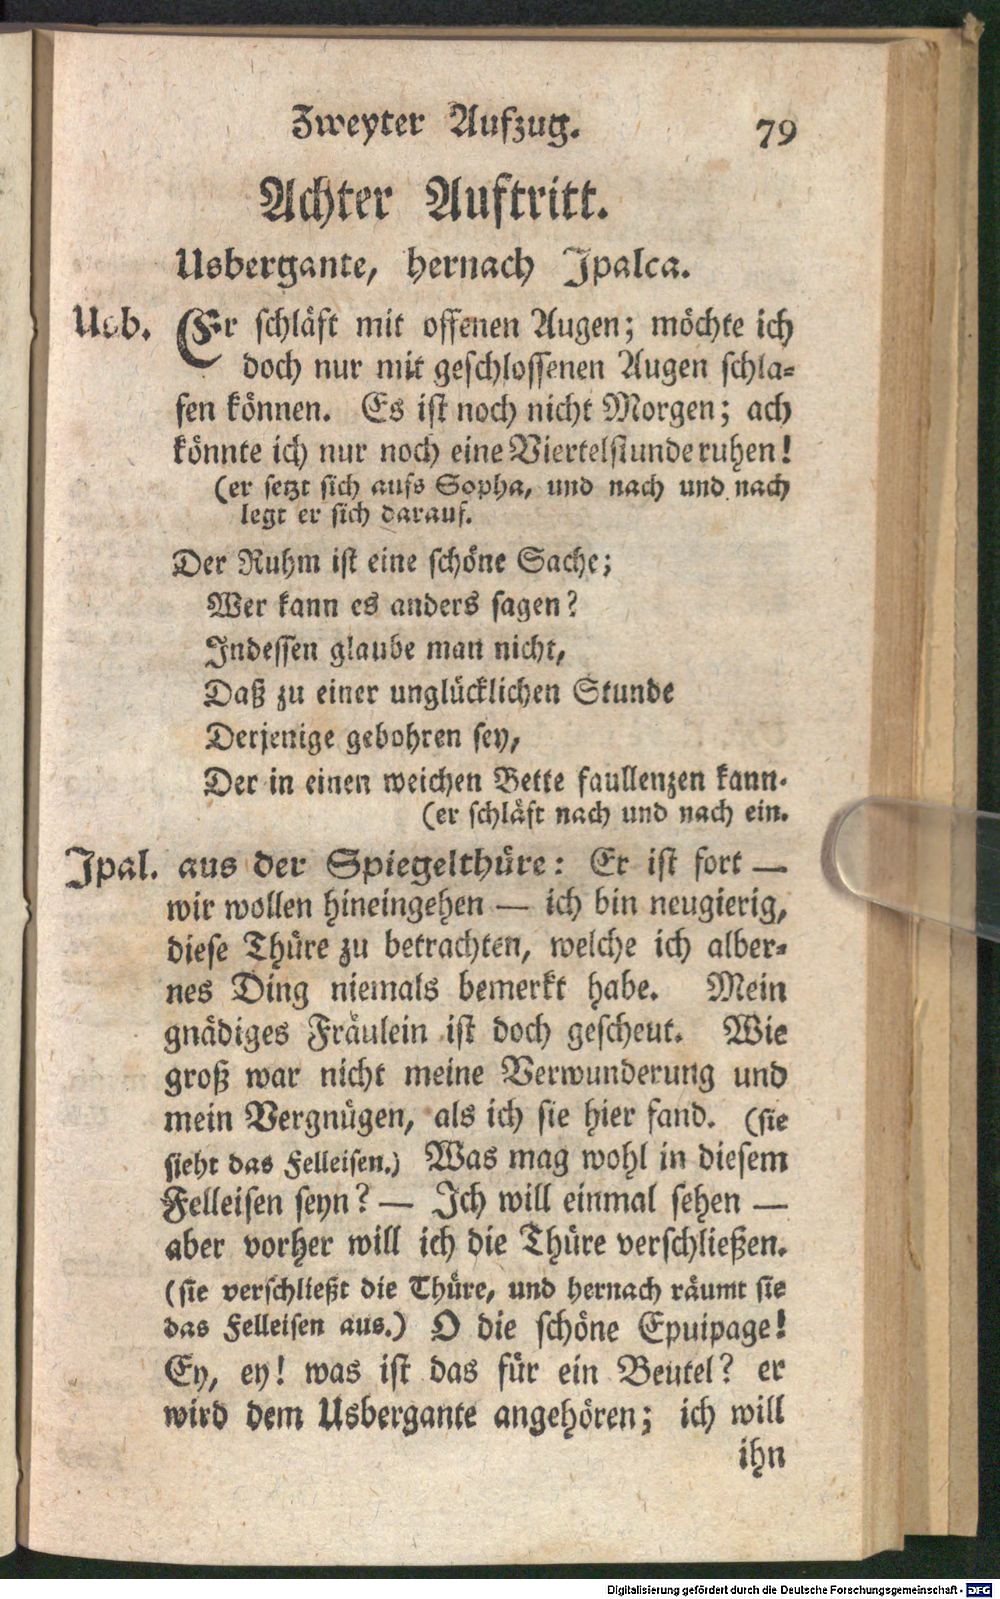 Zweyter Aufzug. 79
Achter Auftritt.
Usbergante, hernach Ipalca.
Usb. Er schläft mit offenen Augen; möchte ich
doch nur mit geschlossenen Augen schla-
fen können. Es ist noch nicht Morgen; ach
könnte ich nur noch eine Viertelstunde ruhen!
(er setzt sich aufs Sopha, und nach und nach
legt er sich darauf.
Der Ruhm ist eine schöne Sache;
Wer kann es anders sagen?
Indessen glaube man nicht,
Daß zu einer unglücklichen Stunde
Derjenige gebohren sey,
Der in einen weichen Bette faullenzen kann.
(er schläft nach und nach ein.
Ipal. aus der Spiegelthüre: Er ist fort —
wir wollen hineingehen — ich bin neugierig,
diese Thüre zu betrachten, welche ich alber-
nes Ding niemals bemerkt habe. Mein
gnädiges Fräulein ist doch gescheut. Wie
groß war nicht meine Verwunderung und
mein Vergnügen, als ich sie hier fand. (sie
sieht das Felleisen.) Was mag wohl in diesem
Felleisen seyn? — Ich will einmal sehen —
aber vorher will ich die Thüre verschließen.
(sie verschließt die Thüre, und hernach räumt sie
das Felleisen aus.) O die schöne Epuipage!
Ey, ey! was ist das für ein Beutel? er
wird dem Usbergante angehören; ich will
ihn
Digitalisierung gefördert durch die Deutsche Forschungsgemeinschaft - DFG